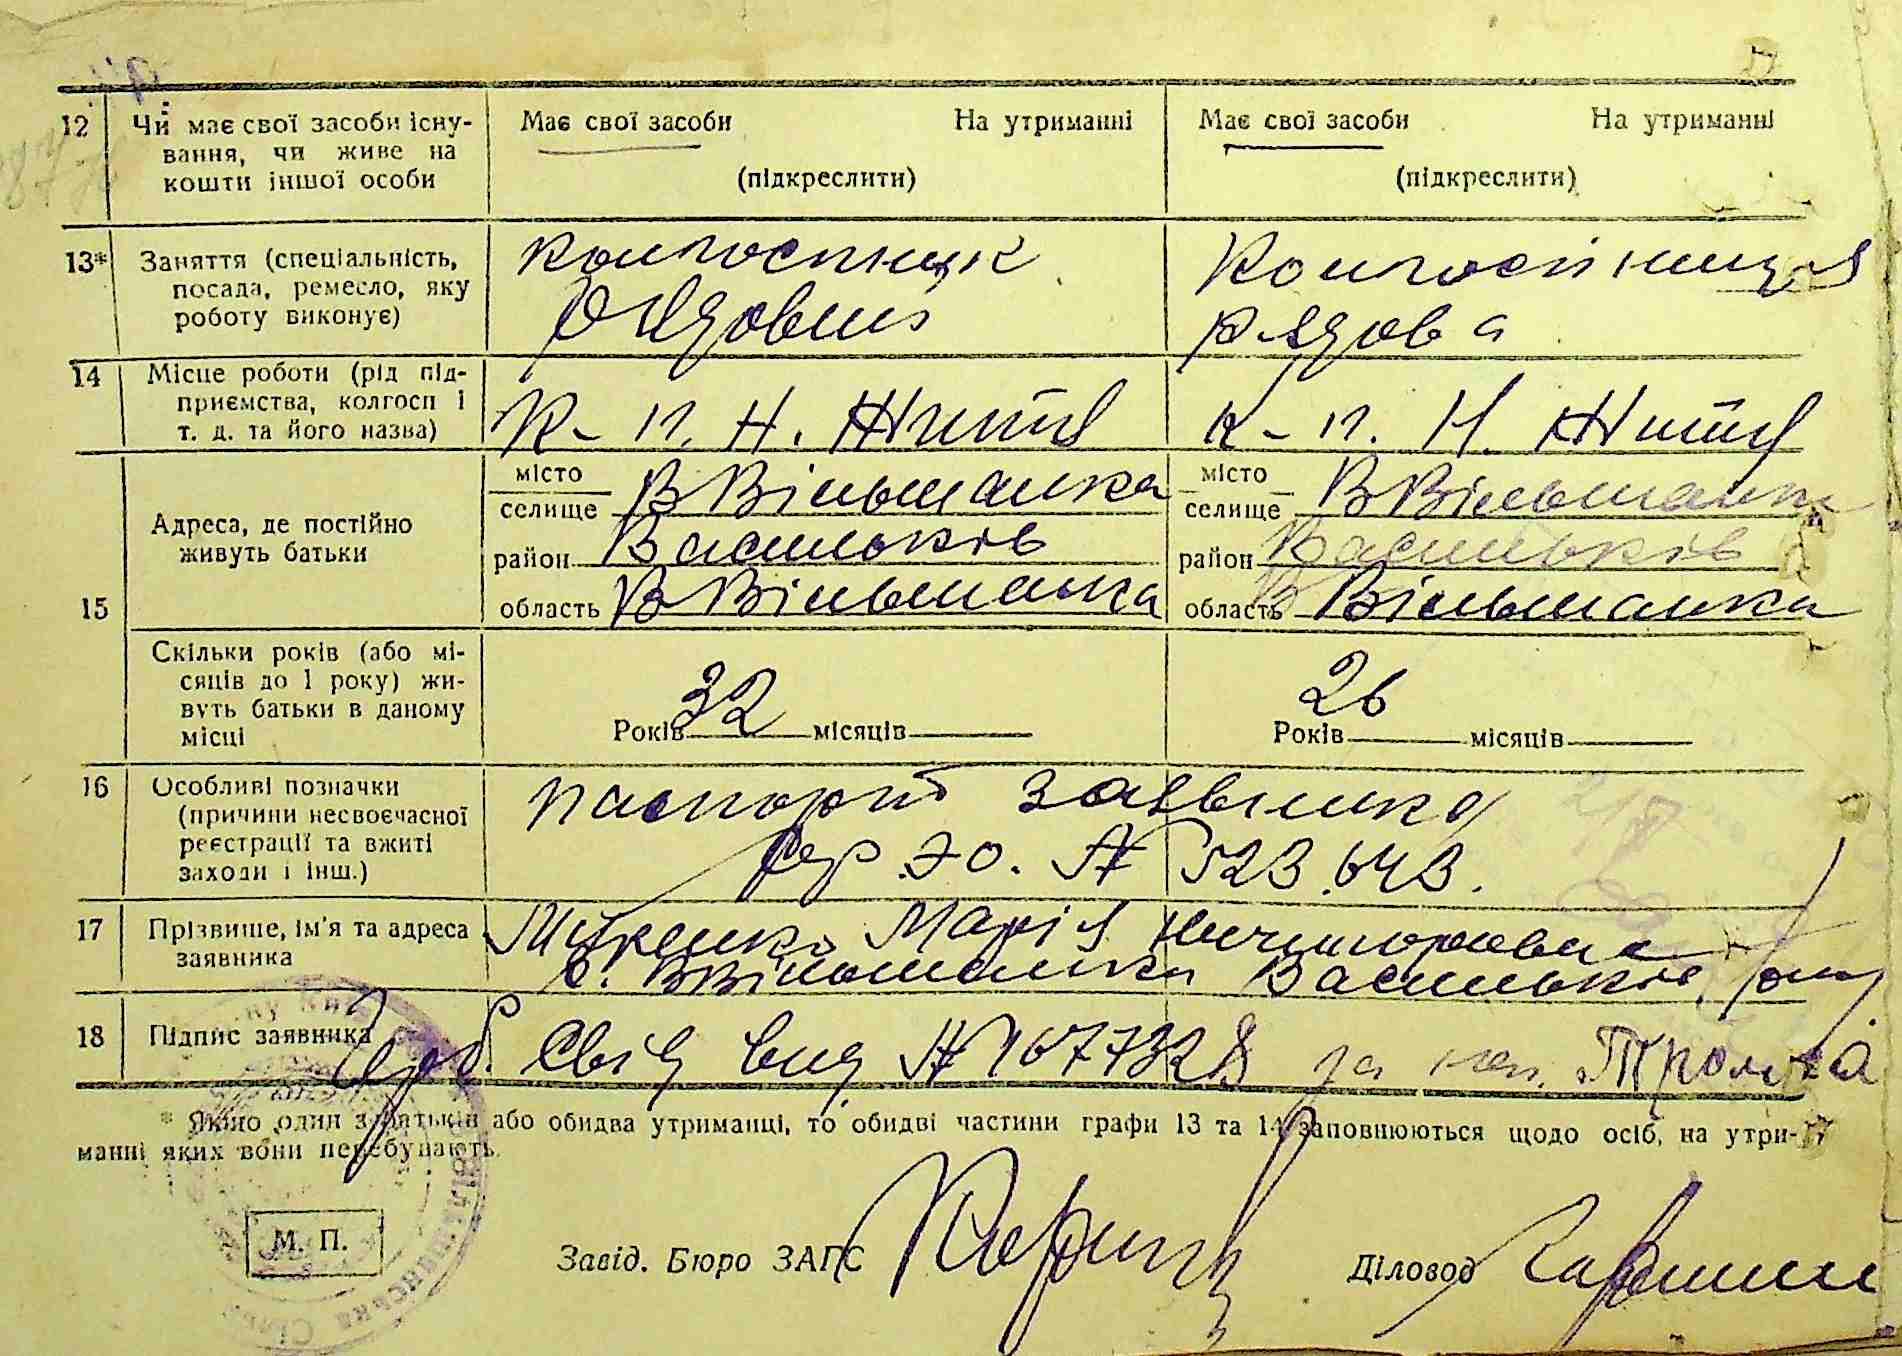 12 Чи має свої засоби існу- Має свої засоби На утриманні Має свої засоби На утриманні
вання, чи живе на
кошти іншої особи (підкреслити) (підкреслити)
13* Заняття (спеціальність, колгоспник Колгоспниця
посада, ремесло, яку рядовий рядова
роботу виконує)
14 Місце роботи (рід під-
приємства, колгосп і К-п. Н. Життя К-п. Н. Життя
т. д. та його назва)
15 Адреса, де постійно живуть батьки
місто селище В Вільшанка місто селище В Вільшанка
район Васильків район Васильків
область В Вільшанка область В Вільшанка
Скільки років (або мі-
сяців до 1 року) жи-
вуть батьки в даному
місці Років 32 місяців Років 26 місяців
16 Особливі позначки паспорт заявника
(причини несвоєчасної
реєстрації та вжиті сер. ЭО. № 523.643.
заходи і інш.)
17 Прізвище, ім'я та адреса Марія Ничипоровна
заявника с. ВВільшанка Васильків
18 Підпис заявника Свід вид № за
* Якщо один з батьків або обидва утриманці, то обидві частини графи 13 та 14 заповнюються щодо осіб, на утри-
манні яких вони перебувають.
М. П.
Завід. Бюро ЗАГС Діловод